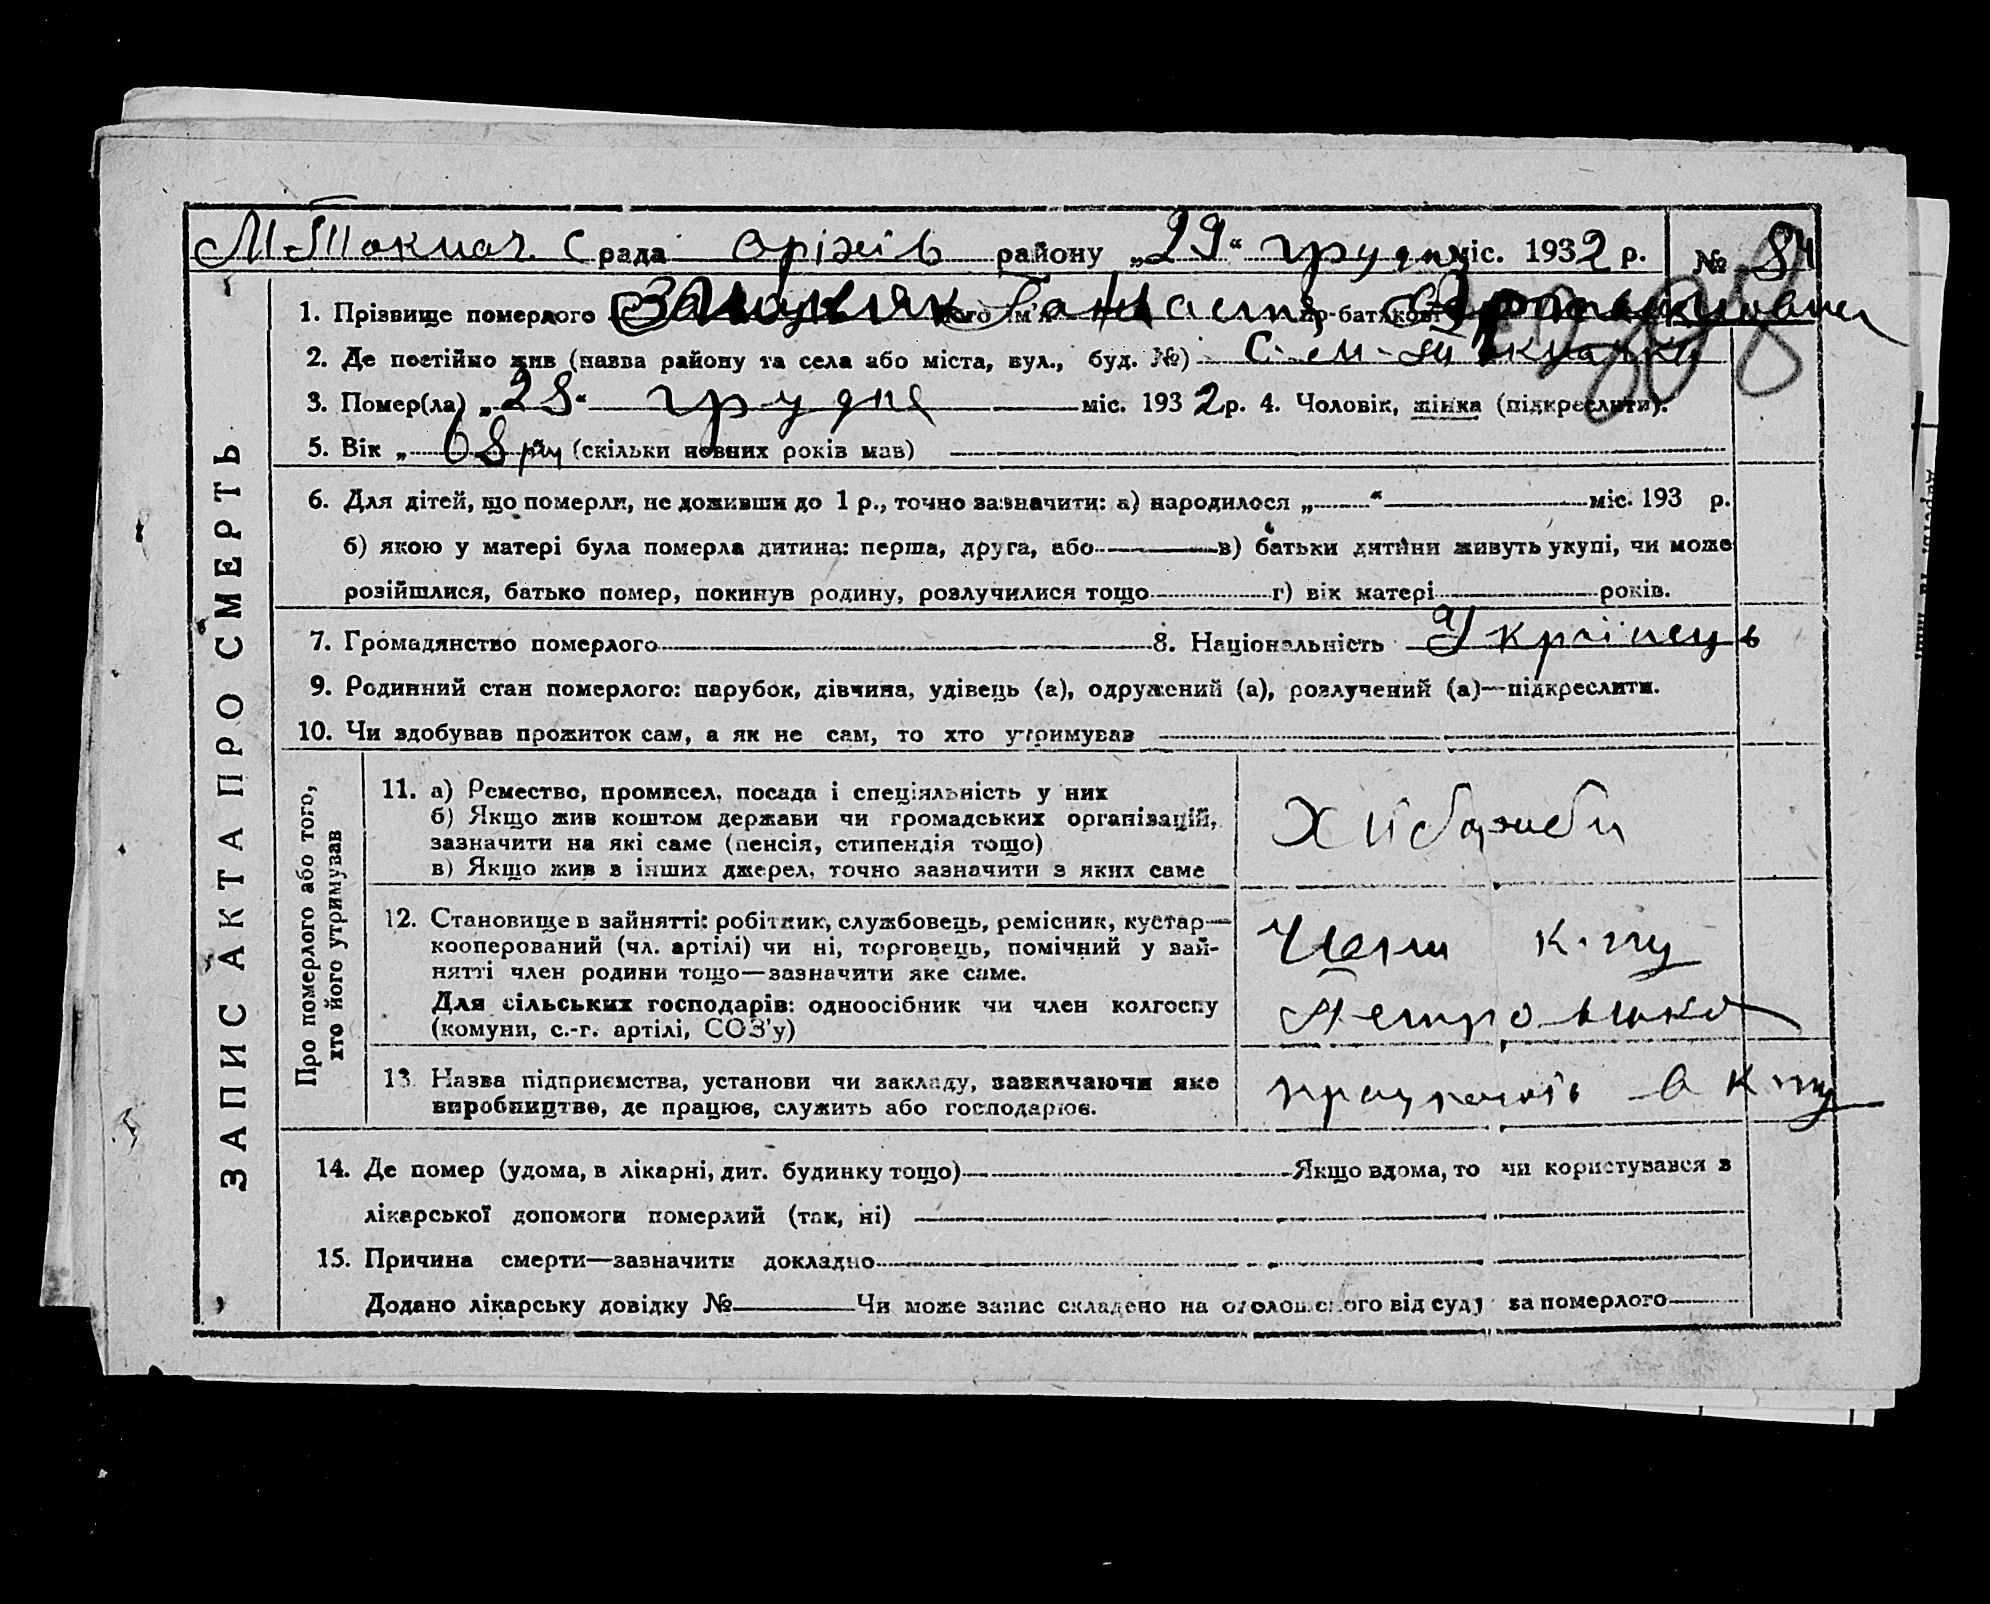 М-Токмач. С рада Оріхів району „29“ грудня міс. 1932 р. № 84
1. Прізвище померлого його ім'я по-батькові
2. Де постійно жив (назва району та села або міста, вул., буд. №) С.
3. Помер(ла) „28“ грудня міс. 1932 р. 4. Чоловік, жінка (підкреслити).
5. Вік „68 (скільки повних років мав)
6. Для дітей, що померли, не доживши до 1 р., точно зазначити: а) народилося „ “ міс. 193 р.
б) якою у матері була померла дитина: перша, друга, або в) батьки дитини живуть укупі, чи може
розійшлися, батько помер, покинув родину, розлучилися тощо г) вік матері років.
7. Громадянство померлого 8. Національність Українець
9. Родинний стан померлого: парубок, дівчина, удівець (а), одружений (а), розлучений (а)—підкреслити.
10. Чи здобував прожиток сам, а як не сам, то хто утримував
ЗАПИС АКТА ПРО СМЕРТЬ
Про померлого або того,
хто його утримував
11. а) Ремество, промисел, посада і спеціяльність у них
б) Якщо жив коштом держави чи громадських організацій,
зазначити на які саме (пенсія, стипендія тощо)
в) Якщо жив з інших джерел, точно зазначити з яких саме
12. Становище в зайнятті: робітник, службовець, ремісник, кустар—
кооперований (чл. артілі) чи ні, торговець, помічний у зай-
нятті член родини тощо—зазначити яке саме.
Для сільських господарів: одноосібник чи член колгоспу
(комуни, с.-г. артілі, СОЗ'у)
Член
13. Назва підприємства, установи чи закладу, зазначаючи яке
виробництво, де працює, служить або господарює.
14. Де помер (удома, в лікарні, дит. будинку тощо) Якщо вдома, то чи користувався з
лікарської допомоги померлий (так, ні)
15. Причина смерти—зазначити докладно
Додано лікарську довідку № Чи може запис складено на оголошеного від суду за померлого